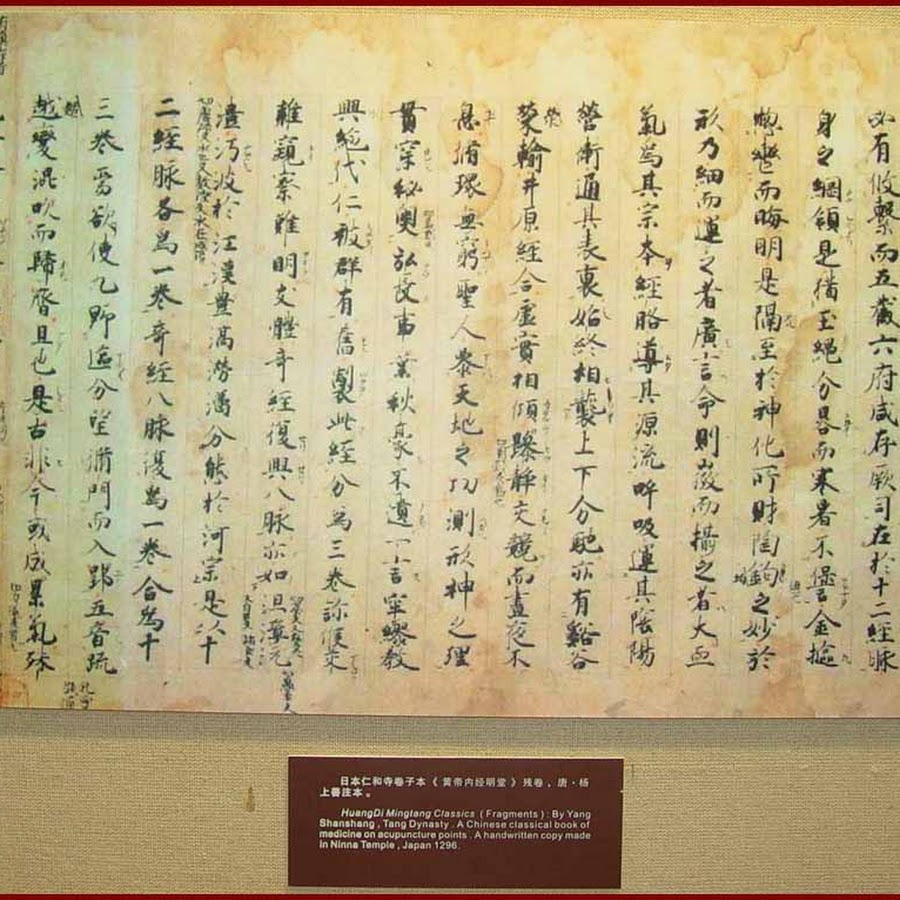 必有攸繋而五藏六府咸存厥司在於十二經脉
身之綱領是猶玉繩分晷而寒暑不僁金樞
惣轡而晦明是隔至於神化所財陶鈞之妙於
形乃細而運之者廣言命則微而攝之者大血
氣為其宗本經胳導其源流呼吸運其陰陽
營衛通其表裏始終相襲上下分馳亦有谿谷
滎輸井原經合虛實相傾躁靜交競而晝夜不
息循環無窮聖人參天地之功測形神之理
貫穿秘奧弘長事業秋豪不遺一言罕繆教
興絕代仁被群有舊製此經分為三卷診候交
雜窺察難明支體奇經復興八脉亦如沮漳沅
沔波於江漢豐滈澇潏分態於河宗是以十
二經脉各為一卷奇經八脉復為一卷合為十
三卷焉欲使九野區分望脩門而入郢五音疏
越變混吹而歸齊且也是古非今或成累氣殊
日本仁和寺卷子本《黄帝内经明堂》残卷,唐·杨
上善注本。
HuangDi Mingtang Classics ( Fragments ) : By Yang
Shanshang , Tang Dynasty . A Chinese classical book of
medicine on acupuncture points . A handwritten copy made
in Ninna Temple , Japan 1296.